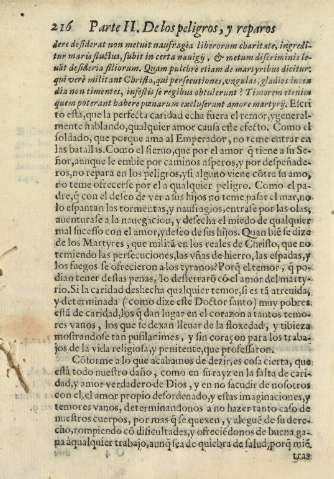 216 Parte II. De los peligros, y reparos
dere desiderat non metuit naufragia liberorum charitate, ingredi-
tur maris fluctus, subit incerta nauigij, & metum discriminis le-
uit desiderij filiorum. Quam pulchre etiam de martyribus dicitur,
qui verè militant Christo, qui persecutiones, vngulas, gladios incen
dia non timentes, infestis se regibus obtulerunt? Timorem etenim
quem poterant habere pœnarum excluserunt amore martyrij. Escri
to està, que la perfecta caridad echa fuera el temor, y general-
mente hablando, qualquier amor causa este efecto. Como el
soldado, que porque ama al Emperador, no teme entrar en
las batallas. Como el sieruo, que por el amor q̃ tiene a su Se-
ñor, aunque le embie por caminos asperos, y por despeñade-
ros, no repara en los peligros, y si alguno viene cõtra su amo,
no teme ofrecerse por el a qualquier peligro. Como el pa-
dre, q̃ con el deseo de ver a sus hijos no teme pasar el mar, no
lo espantan las tormentas, y naufragios, entrase por las olas,
auenturase a la nauegacion, y desecha el miedo de qualquier
mal sucesso con el amor, y deseo de sus hijos. Quan biẽ se dize
de los Martyres, que militã en los reales de Christo, que no
temiendo las persecuciones, las vñas de hierro, las espadas, y
los fuegos se ofrecieron a los tyranos? Porq̃ el temor, q̃ po-
dian tener destas penas, lo desterrarõ cõ el amor del marty-
rio. Si la caridad deshecha qualquier temor, si està tã atreuida,
y determinada (como dize este Doctor santo) muy pobres
està de caridad, los q̃ dan lugar en el corazon a tantos temo-
res vanos, los que se dexan lleuar de la floxedad, y tibieza
mostrandose tan pusilanimes, y sin coraçon para los traba-
jos de la vida religiosa, y penitente, que professaron.
Cõforme a lo que acabamos de dezir, es cosa cierta, que
està todo nuestro daño, como en su rayz en la falta de cari-
dad, y amor verdadero de Dios, y en no sacudir de nosotros
con el, el amor propio desordenado, y estas imaginaciones, y
temores vanos, determinandonos a no hazer tanto caso de
nuestros cuerpos, por mas q̃ se quexen, y alegue de su dere-
cho, rompiendo cõ dificultades, y ofreciẽdonos de buena ga-
na à qualquier trabajo, aunq̃ sea de quiebra de salud, porq̃ miẽ
tras